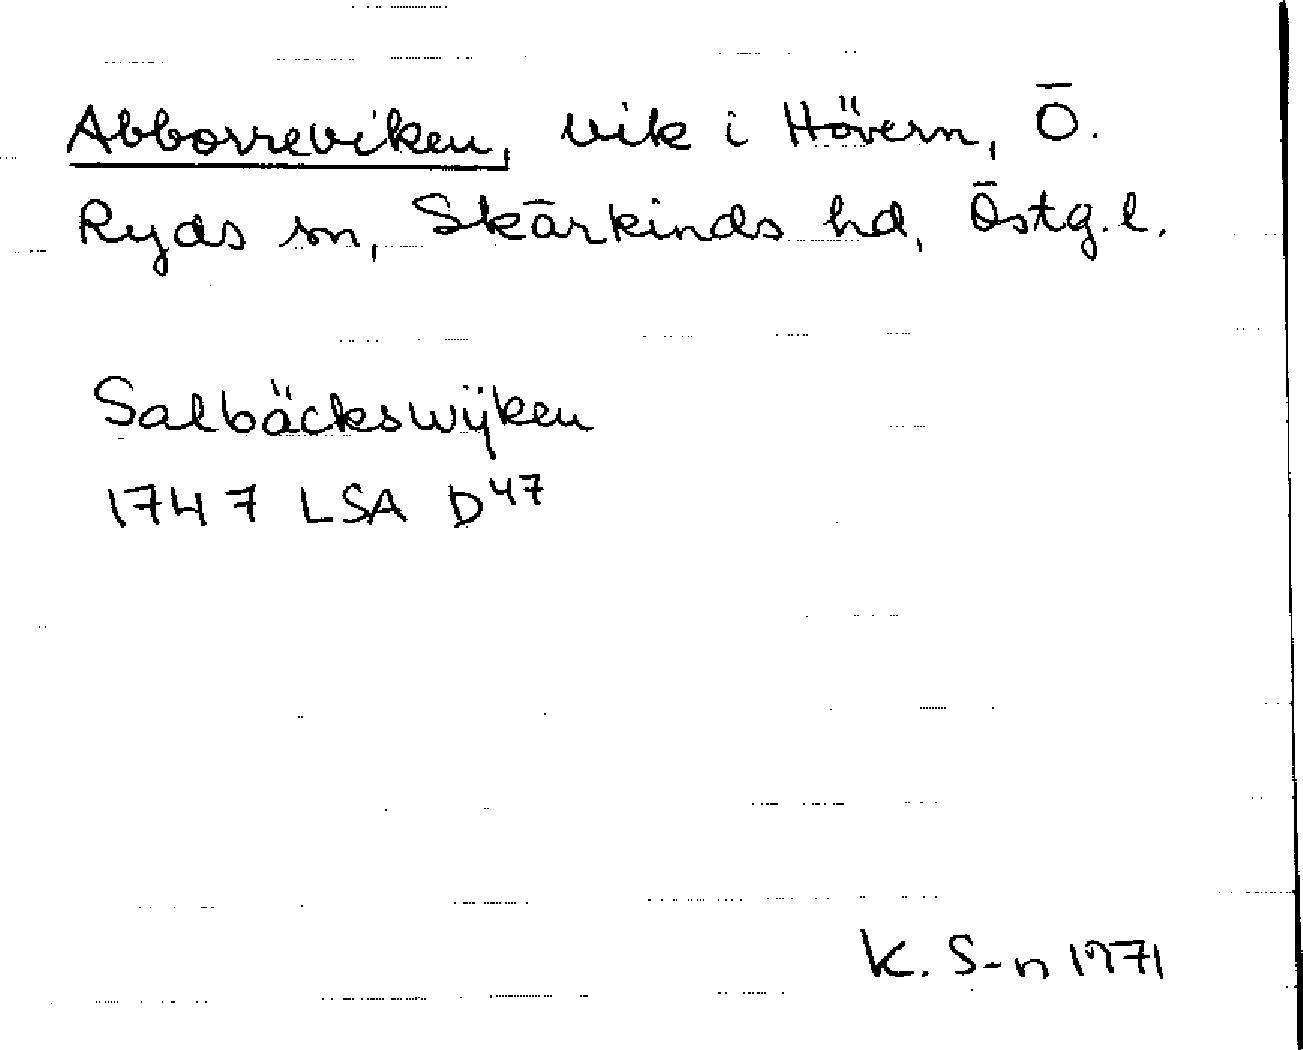 Abborreviken, vik i Hövern, Ö.
Ryds sn, Skärkinds hd, Östg. l.
Salbäckswijken
1747 LSA D47
K. S-n 1971